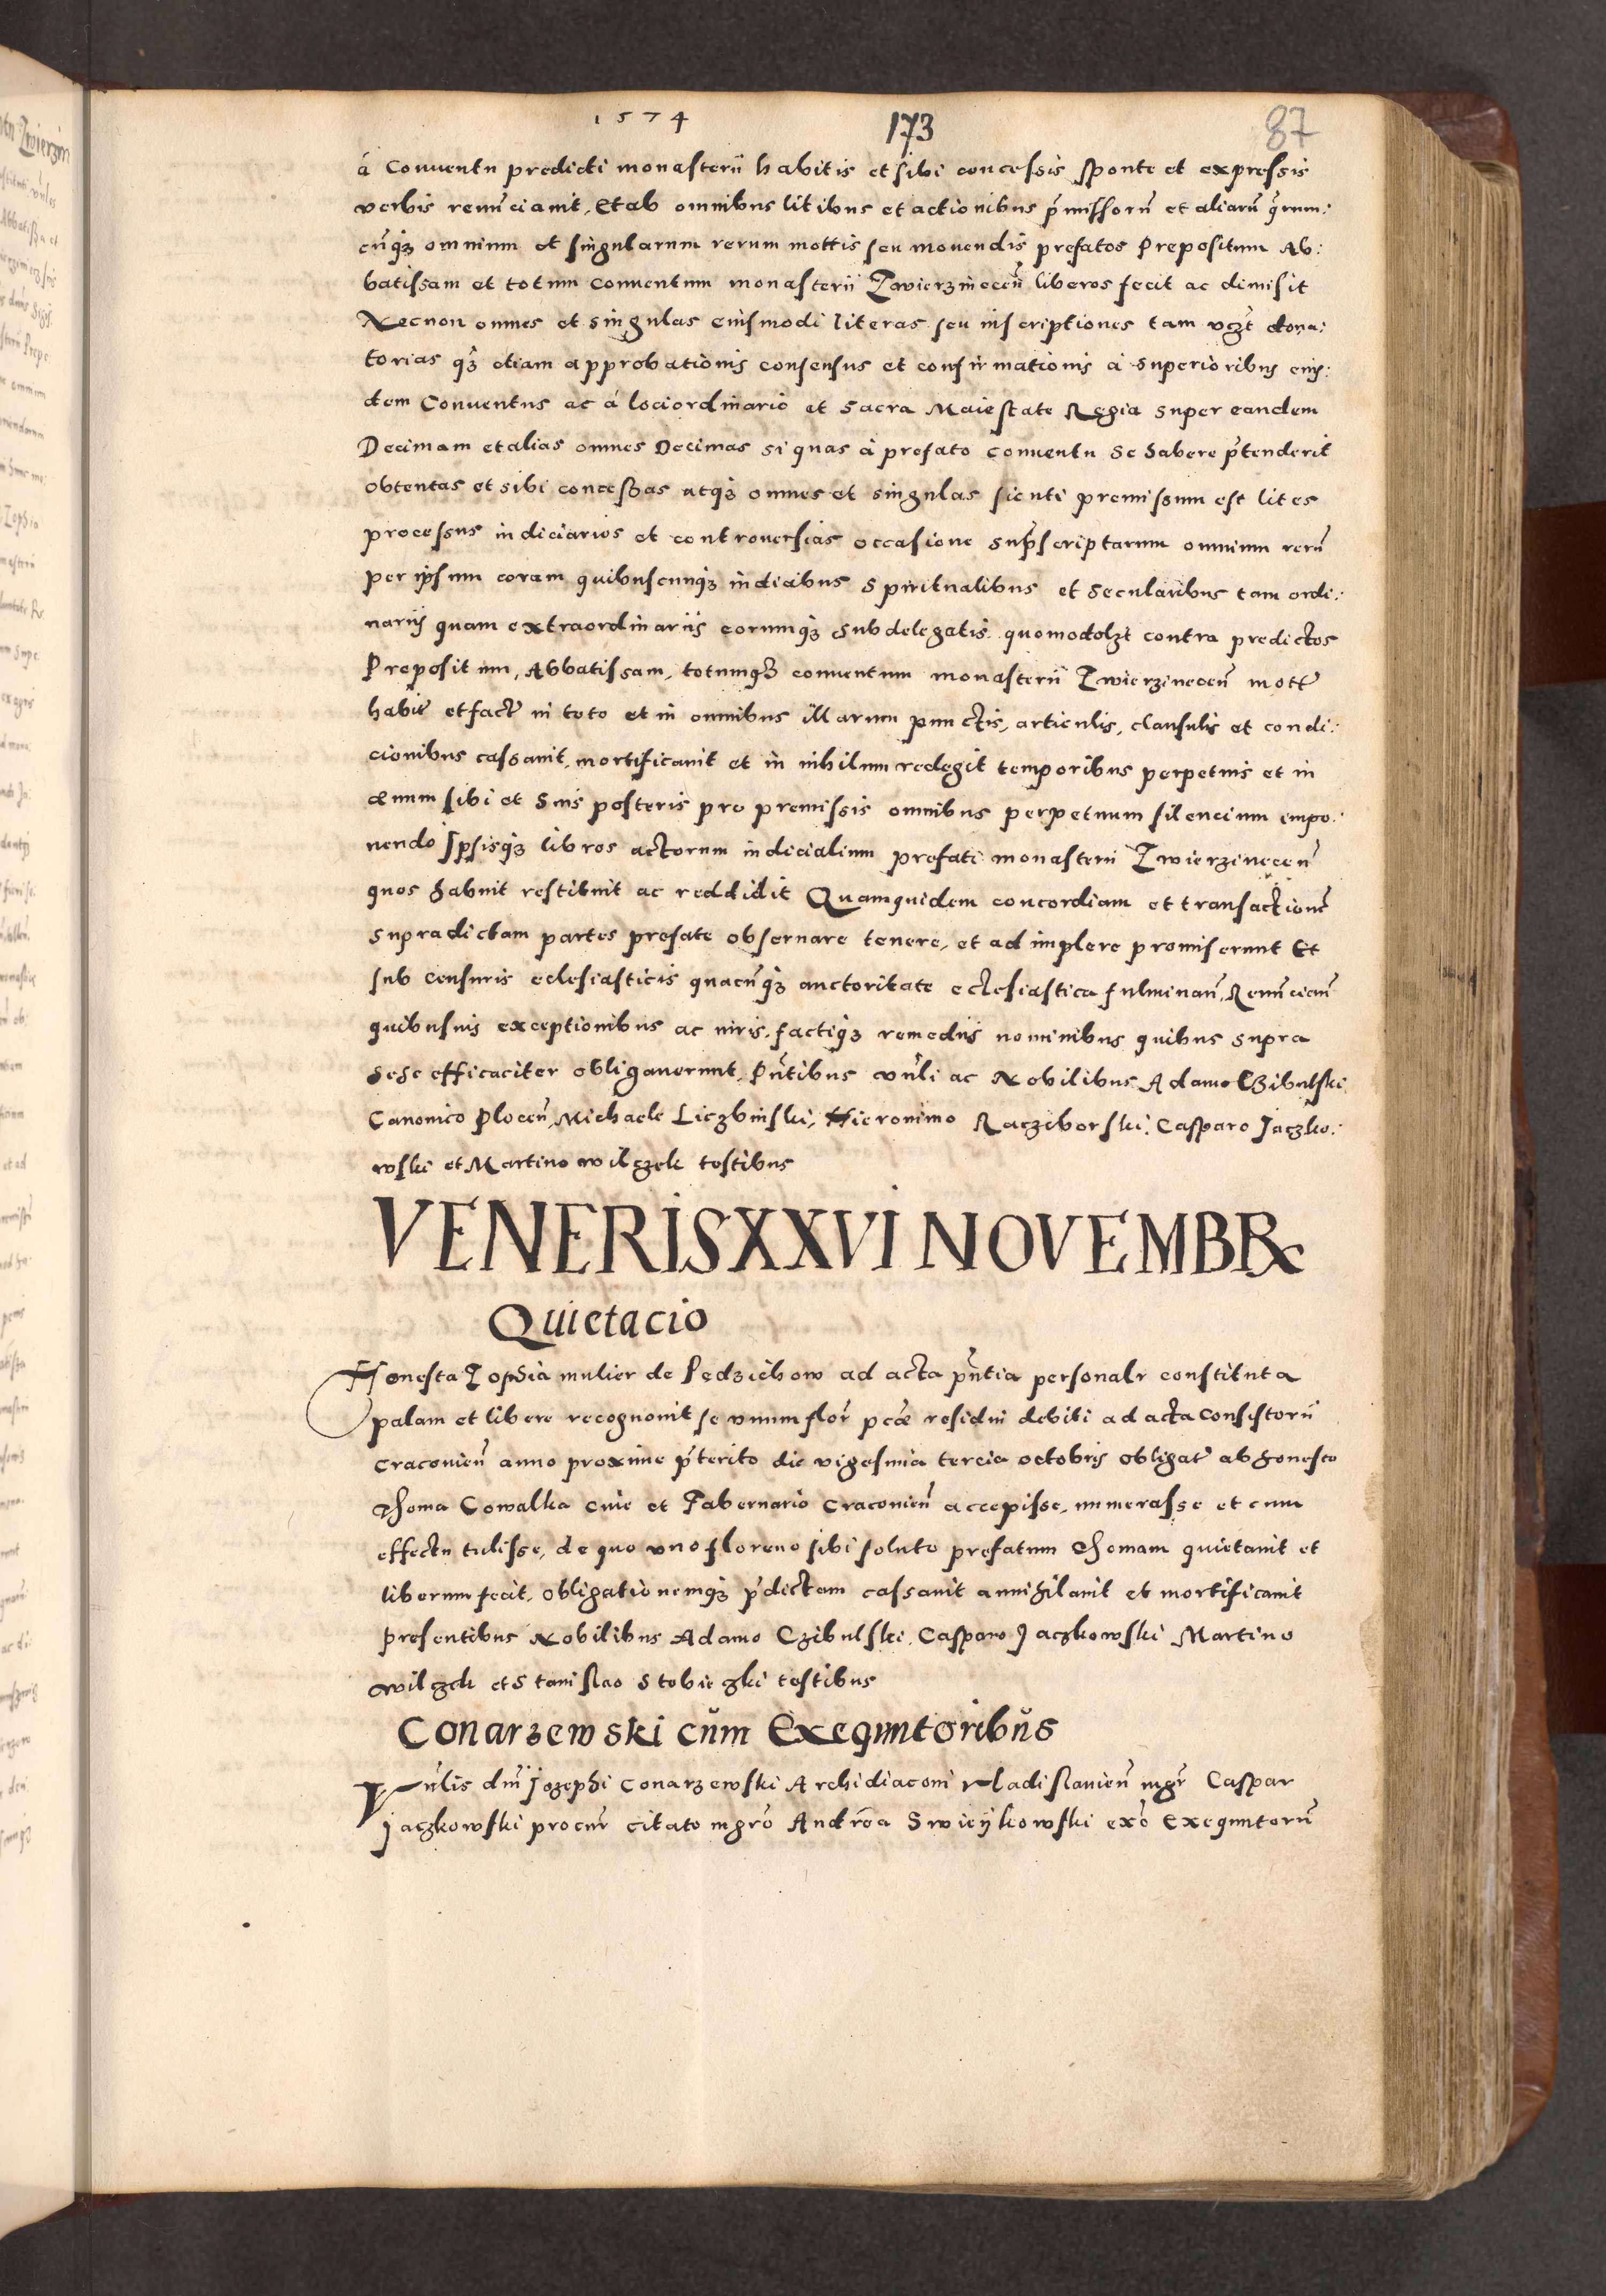 1574 173 87
á Conuentu predicti monasterii habitis et sibi concessis sponte et expressis
verbis renūciauit, Et ab omnibus litibus et actionibus p̄missorū et aliarū q̄rum:
cūq; omnium et singularum rerum mottis seu mouendis prefatos Prepositum Ab:
batissam et totum conuentum monasterii Zwierzinecen̄ liberos fecit ac dimisit
Necnon omnes et singulas eiusmodi literas seu inscriptiones tam vczt dona:
torias q̄; etiam approbationis consensus et confirmationis á superioribus eius:
dem Conuentus ac á loci ordinario et Sacra Maiestate Regia super eandem
Decimam et alias omnes Decimas si quas á prefato conuentu se habere p̄tenderit
obtentas et sibi concessas atq; omnes et singulas sicuti premissum est lites
processus iudiciarios et controuersias occasione sup̄scriptarum omnium rerū
per ipsum coram quibuscunq; iudicibus spiritualibus et secularibus tam ordi:
nariis quam extraordinariis eorumq; subdelegatis quomodolzt contra predictos
Prepositum, Abbatissam, totumq; conuentum monasterii Zwierzinecen̄ mott̄
habit̄ et fact̄ in toto et in omnibus illarum punctis, articulis, clausulis et condi:
cionibus cassauit, mortificauit et in nihilum redegit temporibus perpetuis et in
æuum sibi et suis posteris pro premissis omnibus perpetuum silencium impo:
nendo Ipsisq; libros actorum iudicialium prefati monasterii Zwierzinecen̄
quos habuit restituit ac reddidit Quamquidem concordiam et transactionē
supradictam partes prefate obseruare tenere, et adimplere promiserunt Et
sub censuris eclesiasticis quacūq; auctoritate ecclesiastica fulminan̄, Renūcian̄
quibusuis exceptionibus ac iuris, factiq; remediis nominibus quibus supra
sese efficaciter obligauerunt, Pn̄tibus vn̄li ac Nobilibus Adamo Czibulski
Canonico Plocen̄, Michaele Liczbinski, Hieronimo Raczeborski, Casparo Jaczko:
wski et Martino wilczek testibus
VENERIS XXVI NOVEMBR
Quietacio
Honesta Zophia mulier de Pedzichow ad acta pn̄tia personalr constituta
palam et libere recognouit se vnum flor̄ pccæ residui debiti ad acta Consistorii
Cracouien̄ anno proxime p̄terito die vigesima tercia octobris obligat̄ ab honesto
Thoma Cowalka ciue et Tabernario Cracouien̄ accepisse, numerasse et cum
effectu tulisse, de quo vno floreno sibi soluto prefatum Thomam quietauit et
liberum fecit, obligationemq; p̄dictam cassauit annihilauit et mortificauit
presentibus Nobilibus Adamo Czibulski, Casparo Jaczkowski Martino
wilczek et Stanislao Stobieczki testibus
Conarzewski cum Exequutoribus
Vn̄lis dn̄i Jozephi Conarzewski Archidiaconi Vladislauien̄ mgr̄ Caspar
Jaczkowski procur̄ citato mgrō Andrea Swieijkowski exō Exequutorū